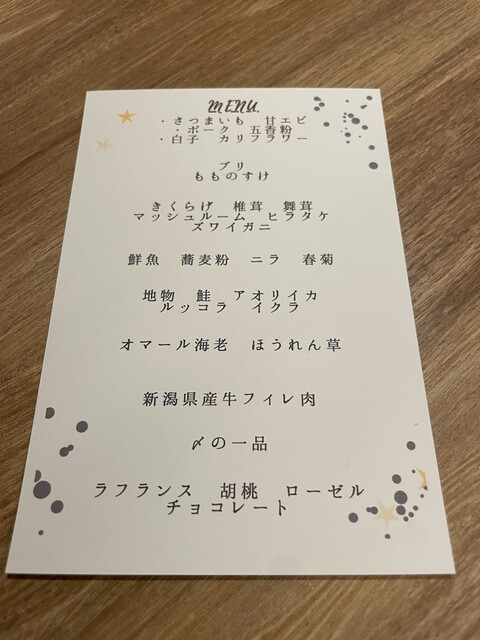 MENU
・さつまいも　甘エビ
・ポーク　五香粉
・白子　カリフラワー
ブリ
もものすけ
きくらげ　椎茸　舞茸
マッシュルーム　ヒラタケ
ズワイガニ
鮮魚　蕎麦粉　ニラ　春菊
地物　鮭　アオリイカ
ルッコラ　イクラ
オマール海老　ほうれん草
新潟県産牛フィレ肉
〆の一品
ラフランス　胡桃　ローゼル
チョコレート